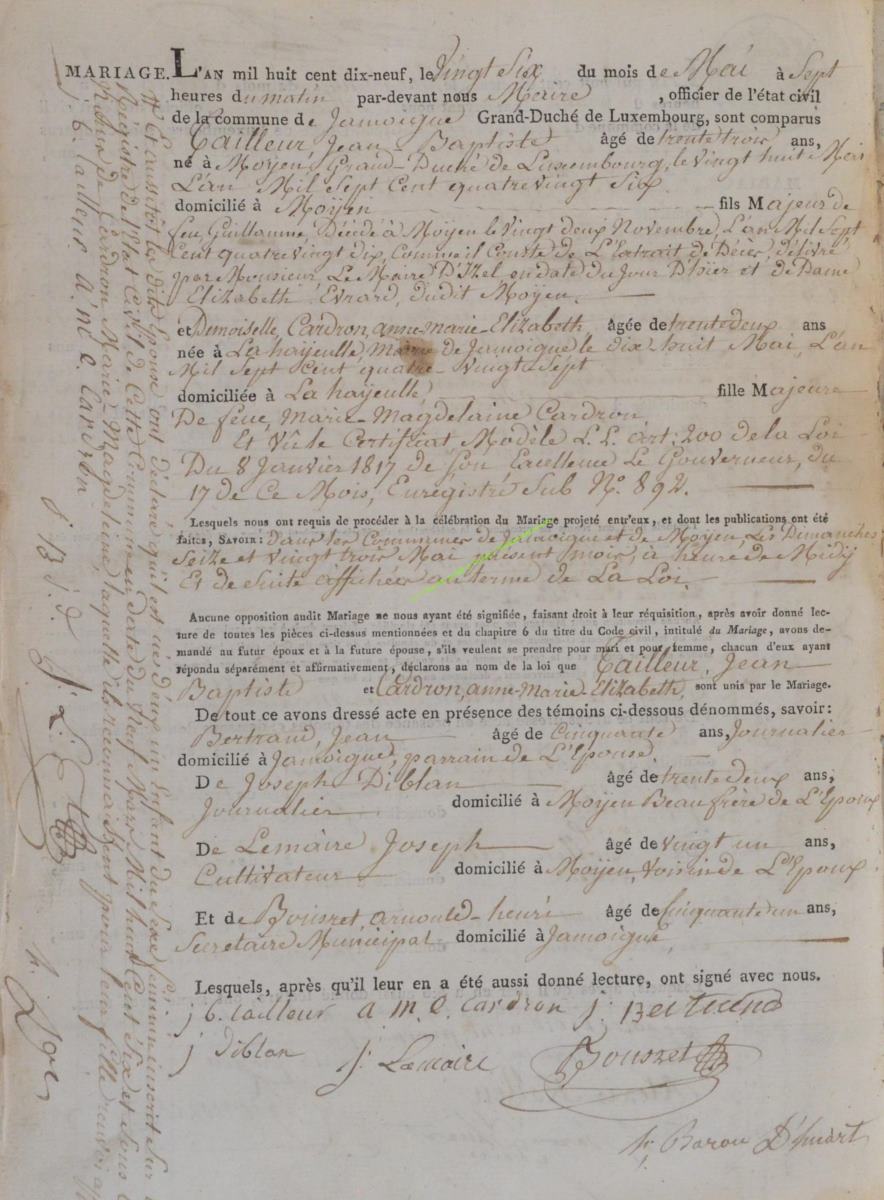 MARIAGE. L'AN mil huit cent dix-neuf, le Vingt Six du mois de Mai à Sept
heures du matin par-devant nous Maire , officier de l'état civil
de la commune de Jamoigne Grand-Duché de Luxembourg, sont comparus
Tailleur Jean Baptiste âgé de trente trois ans,
né à Moyen Grand-Duché de Luxembourg, le vingt huit Mai
L'an Mil Sept Cent quatre vingt Six
domicilié à Moyen fils Majeur de
feu Guillaume Décédé à Moyen le vingt deux Novembre, L'an Mil Sept
Cent quatre vingt dix, Comme il Conste de L'Extrait de Décès, délivré
par Monsieur Le Maire D'Izel en date du Jour D'hier et de Dame
Elizabeth Evrard, dudit Moyen.
et Demoiselle, Cardron, anne-marie-Elizabeth, âgée de trente deux ans
née à La hayeulle, de Jamoigne le dix-huit Mai, L'an
Mil Sept Cent quatre-vingt Sept
domiciliée à La hayeulle, fille Majeure
De féue, Marie-Magdelaine Cardron
Et Vu le Certificat Modèle L.L. art: 200 de la Loi
Du 8 Janvier 1817 de Son Excellence Le Gouverneur, du
17 de Ce Mois, Enregistré Sub N.º 892.
Lesquels nous ont requis de procéder à la célébration du Mariage projeté entr'eux, et dont les publications ont été
faites, SAVOIR: dans les Communes de Jamoigne et de Moyen, Les Dimanches
Seize et vingt trois Mai présent mois, à heure de Midy
Et de Suite affichées au terme de La Loi
Aucune opposition audit Mariage ne nous ayant été signifiée, faisant droit à leur réquisition, après avoir donné lec-
ture de toutes les pièces ci-dessus mentionnées et du chapitre 6 du titre du Code civil, intitulé du Mariage, avons de-
mandé au futur époux et à la future épouse, s'ils veulent se prendre pour mari et pour femme, chacun d'eux ayant
répondu séparément et affirmativement, déclarons au nom de la loi que Tailleur, Jean
Baptiste et Cardron, anne-Marie-Elizabeth, sont unis par le Mariage.
De tout ce avons dressé acte en présence des témoins ci-dessous dénommés, savoir:
Bertrand, Jean âgé de Cinquante ans, Journalier
domicilié à Jamoigne, parrain de L'Epouse.
De Joseph Diblan âgé de trente deux ans,
Journalier domicilié à Moyen Beaufrère de L'Epoux
De Lemaire Joseph âgé de vingt un ans,
Cultivateur domicilié à Moyen, Voisin de L'Epoux
Et de Bouszet, arnould-henri âgé de Cinquante un ans,
Secretaire Municipal domicilié à Jamoigne,
Lesquels, après qu'il leur en a été aussi donné lecture, ont signé avec nous.
j b. tailleur a m. e. cardron j. Bertrand
j diblan j. Lemaire Bouszet
h. Baron D'huart
Et aussitôt les dits Epoux ont déclaré qu'il est né d'eux un Enfant du Sexe féminin inscrit Sur
Registre de l'Etat Civil de Cette Commune en date du Neuf Mars Mil huit Cent Six et Sous
de Cardron Marie-Magdeleine, laquelle ils reconnaissent pour leur fille
j. b. tailleur a. m. e. cardron
j B j. d. j. L.